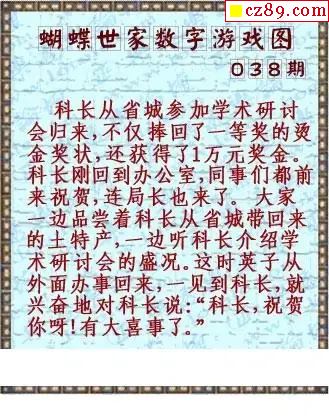 cz89.com
蝴蝶世家数字游戏图
038期
科长从省城参加学术研讨
会归来,不仅捧回了一等奖的烫
金奖状,还获得了1万元奖金。
科长刚回到办公室,同事们都前
来祝贺,连局长也来了。大家
一边品尝着科长从省城带回来
的土特产,一边听科长介绍学
术研讨会的盛况。这时英子从
外面办事回来,一见到科长,就
兴奋地对科长说:“科长,祝贺
你呀!有大喜事了。”